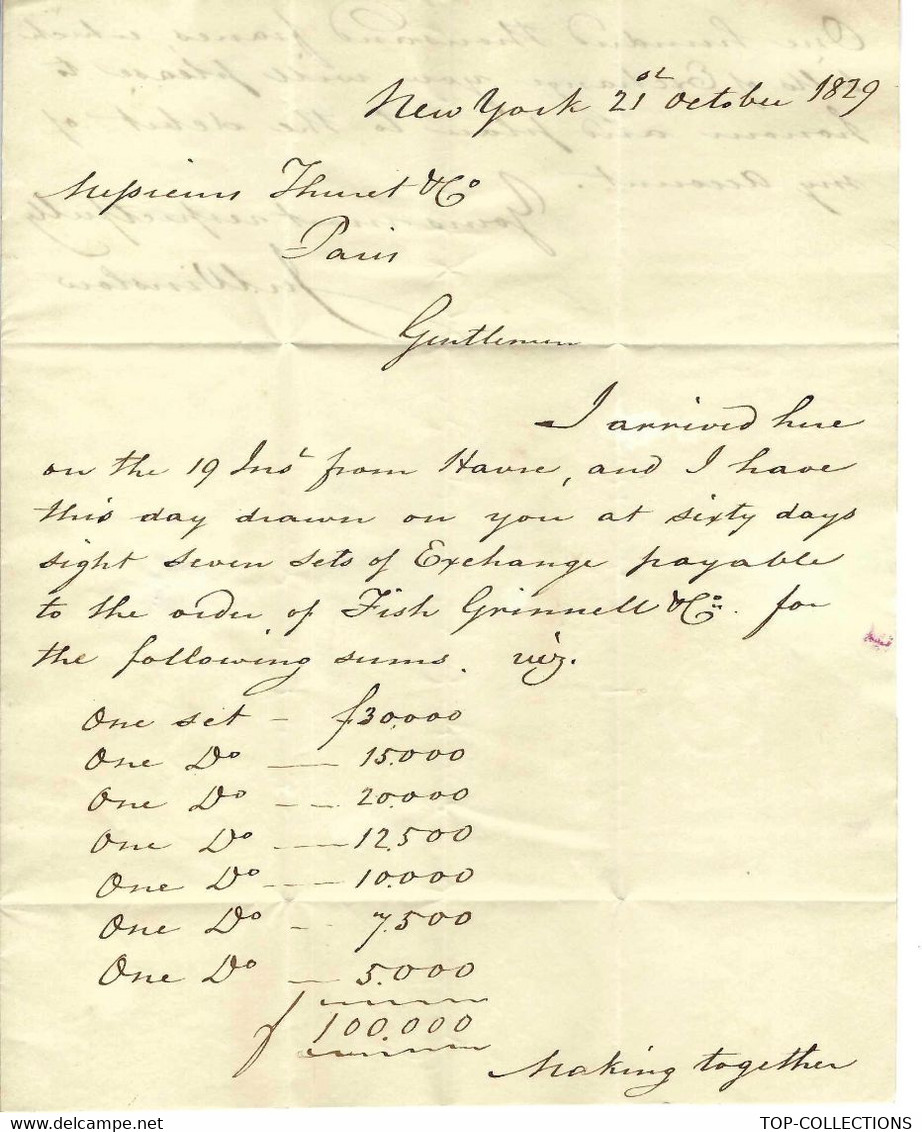 New York 21st October 1829
Messieurs Thuret & Co
Paris
Gentlemen
I arrived here
on the 19 Inst from Havre, and I have
this day drawn on you at sixty days
sight seven sets of Exchange payable
to the order of Fish Grinnell & Co. for
the following sums. viz.
One set - f 30,000
One Do — 15.000
One Do — 20.000
One Do — 12.500
One Do — 10.000
One Do - 7.500
One Do — 5.000
f 100.000
Making together
TOP-COLLECTIONS